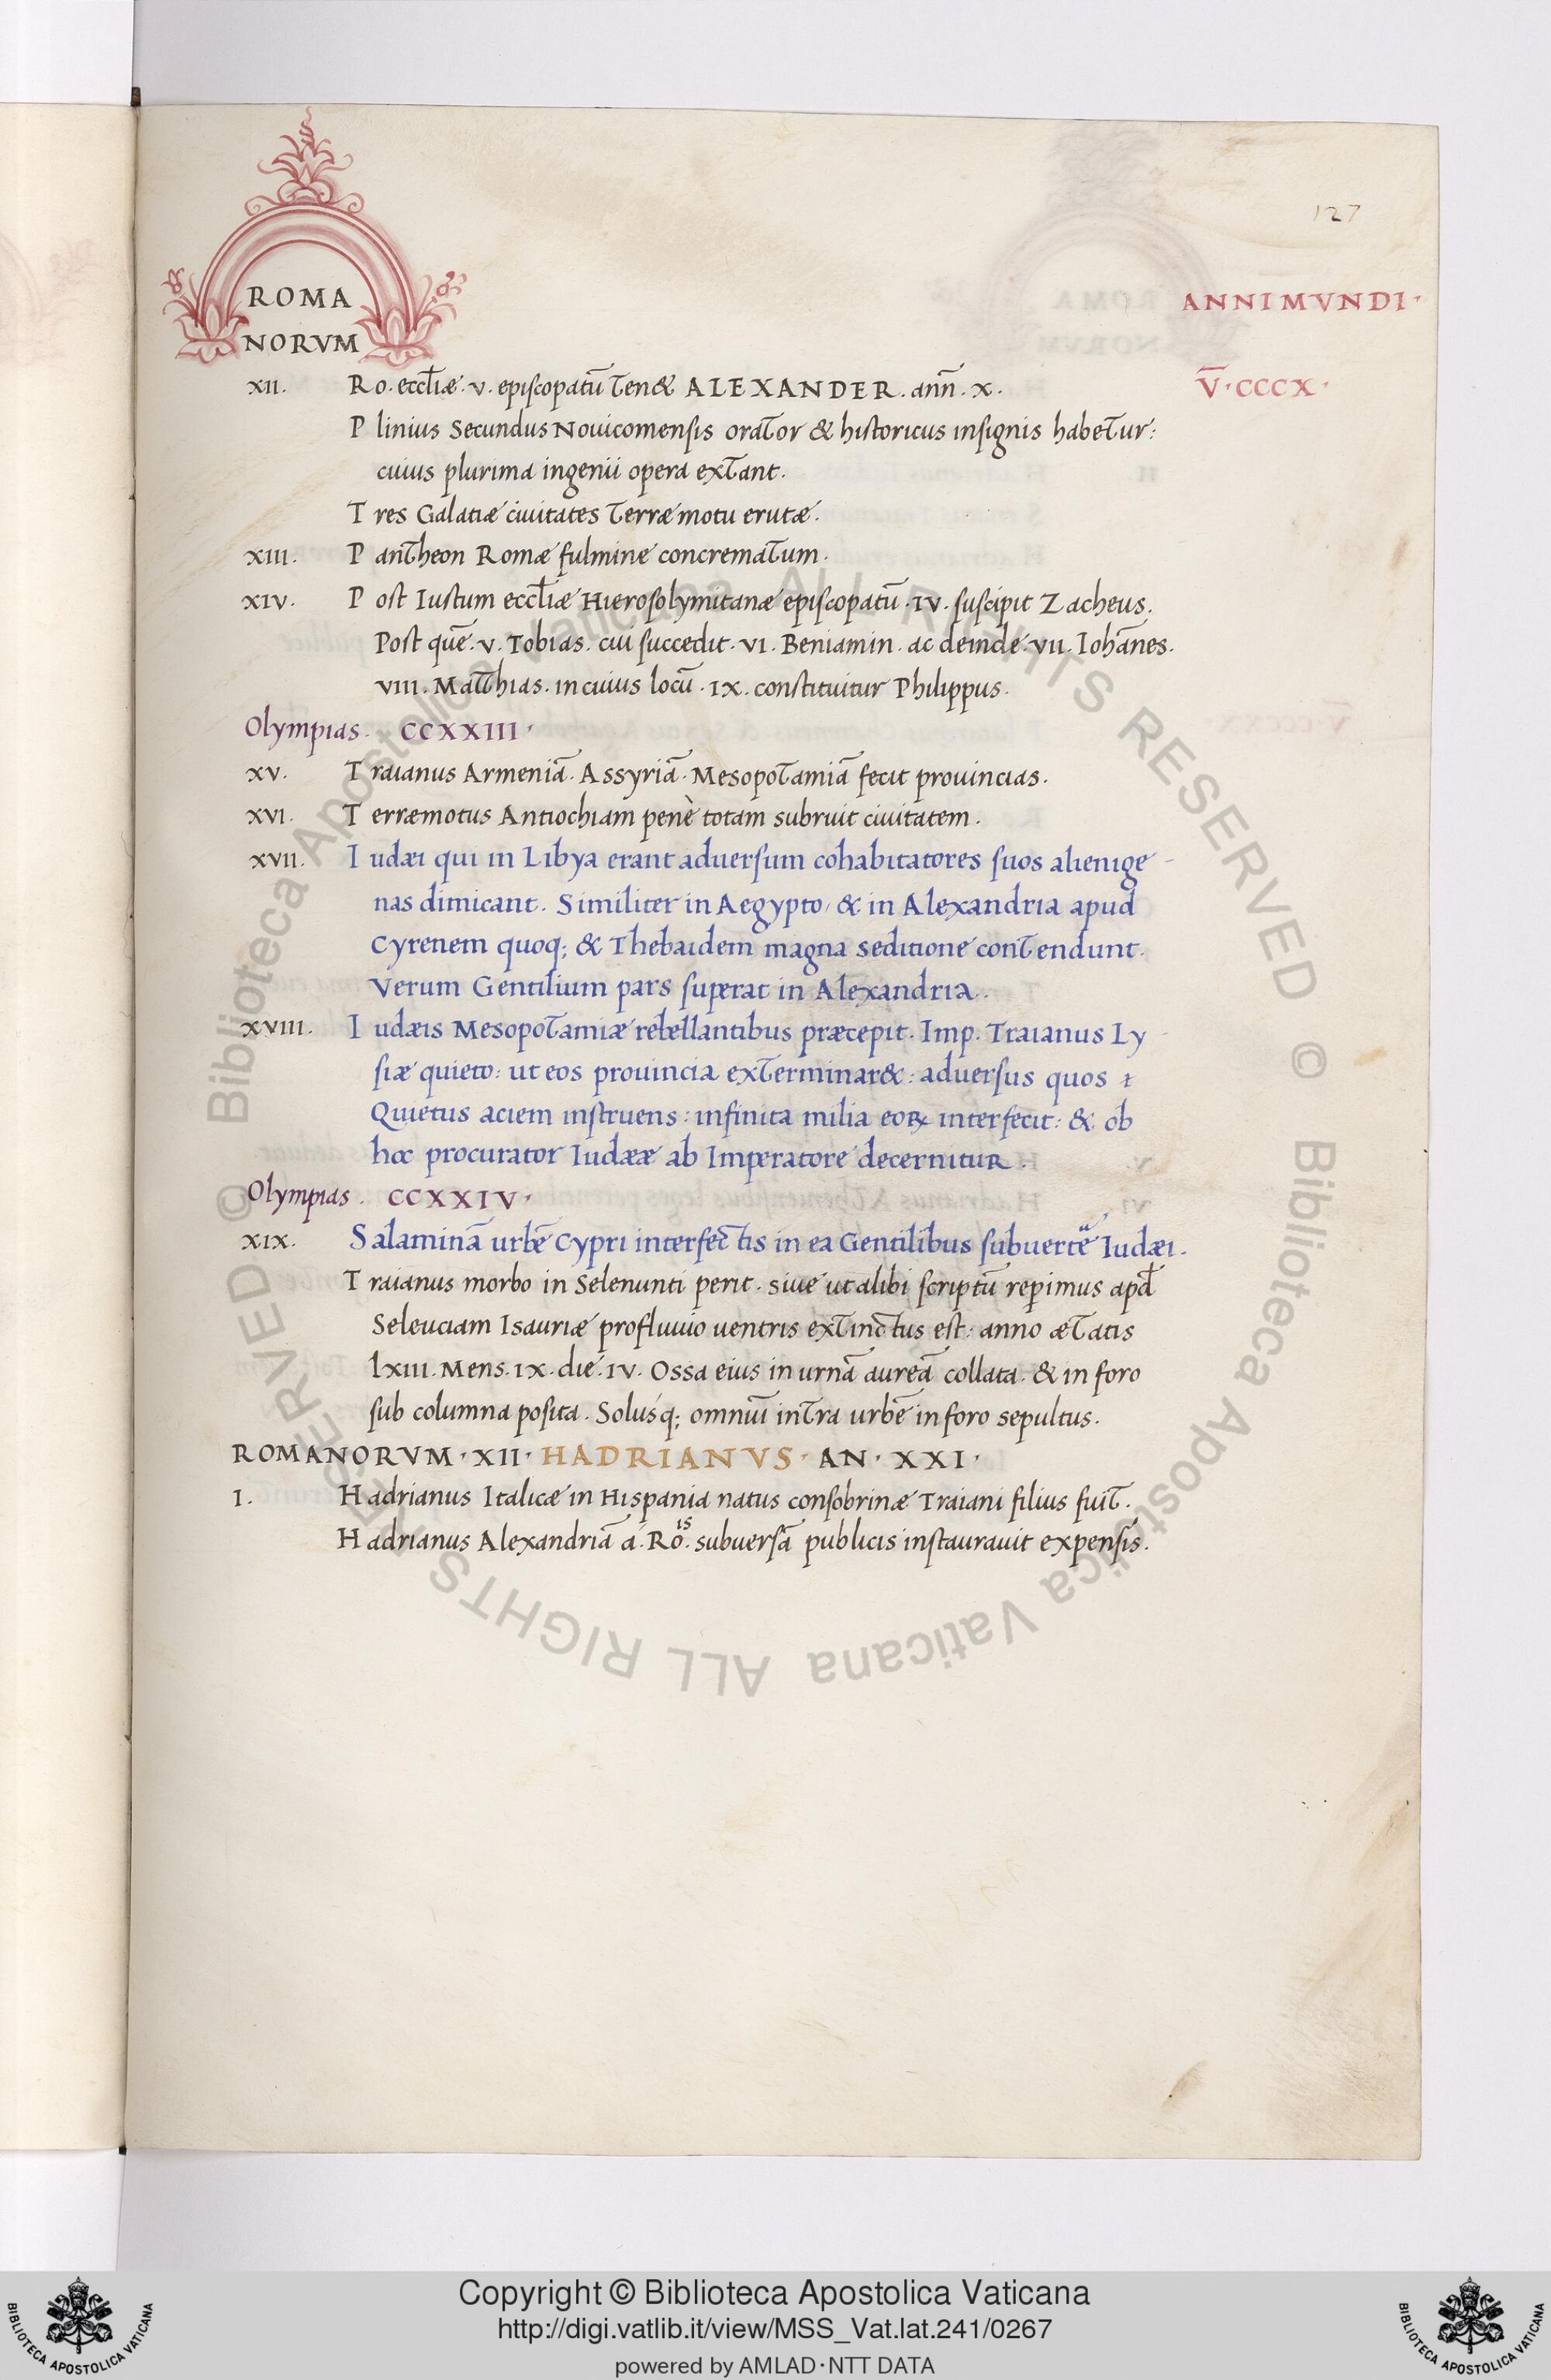 127
ROMA
NORVM
ANNI MVNDI·
XII. Ro. eccl̄iæ. v. episcopatū tenet ALEXANDER. ann̄. x.
V̄·CCCX·
Plinius Secundus Nouicomensis orator & historicus insignis habetur:
cuius plurima ingenii opera extant.
Tres Galatiæ ciuitates terræmotu erutæ.
XIII. Pantheon Romæ fulmine concrematum.
XIV. Post Iustum eccl̄iæ Hierosolymitanæ episcopatū. IV. suscipit Zacheus.
Post quē. v. Tobias. cui succedit. VI. Beniamin. ac deinde. VII. Iohānes.
VIII. Matthias. in cuius locū. IX. constituitur Philippus.
Olympias. CCXXIII·
XV. Traianus Armeniā. Assyriā. Mesopotamiā fecit prouincias.
XVI. Terræmotus Antiochiam penè totam subruit ciuitatem.
XVII. Iudæi qui in Libya erant aduersum cohabitatores suos alienige-
nas dimicant. Similiter in Aegypto, & in Alexandria apud
Cyrenem quoq; & Thebaidem magna seditione contendunt.
Verum Gentilium pars superat in Alexandria.
XVIII. Iudæis Mesopotamiæ rebellantibus præcepit. Imp. Traianus Ly-
siæ quieto: ut eos prouincia exterminar&: aduersus quos
Quietus aciem instruens: infinita milia eoꝝ interfecit: & ob
hoc procurator Iudææ ab Imperatore decernitur.
Olympias. CCXXIV·
XIX. Salaminā urbē Cypri interfectis in ea Gentilibus subuertē Iudæi.
Traianus morbo in Selenunti perit. siue ut alibi scriptū reperimus apd̄
Seleuciam Isauriæ profluuio uentris extinctus est: anno ætatis
lxiii. Mens. IX. die. IV. Ossa eius in urnā aureā collata. & in foro
sub columna posita. Solusq; omniū intra urbē in foro sepultus.
ROMANORVM·XII·HADRIANVS·AN·XXI·
I. Hadrianus Italicæ in Hispania natus consobrinæ Traiani filius fuit.
Hadrianus Alexandriā a. Ro.is subuersā publicis instaurauit expensis.
© Biblioteca Apostolica Vaticana ALL RIGHTS RESERVED
© Biblioteca Apostolica Vaticana ALL RIGHTS RESERVED
Copyright © Biblioteca Apostolica Vaticana
http://digi.vatlib.it/view/MSS_Vat.lat.241/0267
powered by AMLAD·NTT DATA
BIBLIOTECA APOSTOLICA VATICANA
BIBLIOTECA APOSTOLICA VATICANA